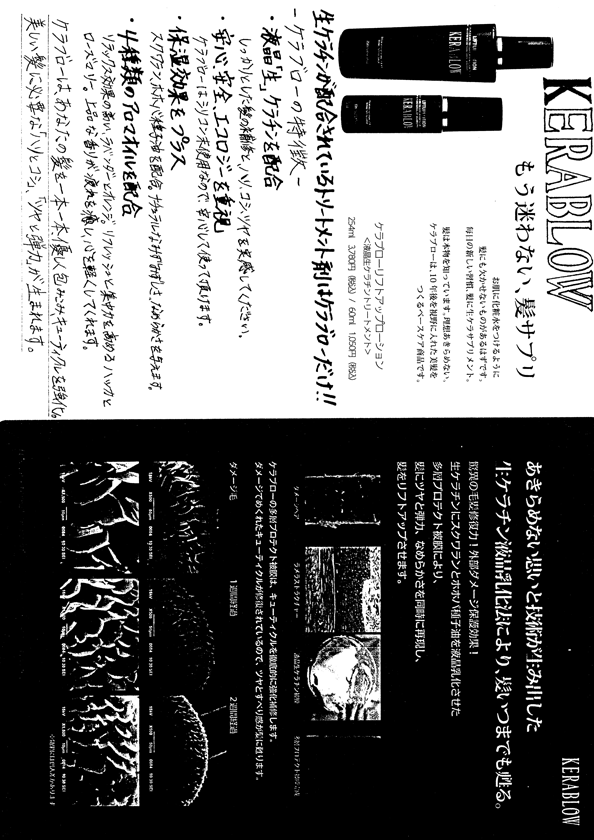 KERABLOW
もう迷わない、髪サプリ
お肌に化粧水をつけるように
髪にも欠かせないものがあるはずです。
毎日の新しい習慣、髪に生ケラサプリメント。
髪は本物を知っています。理想あきらめない、
ケラブローは、10年後を視野に入れた美髪を
つくるベースケア商品です。
ケラブローリフトアップローション
<液晶生ケラチントリートメント>
254ml 3,780円(税込) / 60ml 1,050円(税込)
KERABLOW
KERABLOW
生ケラチンが配合されているトリートメント剤はケラブローだけ!!
-ケラブローの特徴-
・液晶「生」ケラチンを配合
しっかりとした髪の補修と、ハリ、コシ、ツヤを実感してください。
・安心、安全、エコロジーを重視
ケラブローはシリコン未使用なので、安心して使って頂けます。
・保湿効果をプラス
スクワラン、ホホバ種子油を配合。ナチュラルなみずみずしさ、なめらかさを与えます。
・4種類のアロマオイルを配合
リラックス効果の高い、ラベンダーとオレンジ、リフレッシュと集中力を高めるハッカと
ローズマリー。上品な香りが疲れを癒し、心を軽くしてくれます。
ケラブローは、あなたの髪を一本一本、優しく包み込みキューティクルを強化。
美しい髪に必要な「ハリとコシ」、「ツヤと弾力」が生まれます。
KERABLOW
あきらめない思いと技術が生み出した
生ケラチン液晶乳化法により、髪いつまでも甦る。
驚異の毛髪修復力!外部ダメージ保護効果!
生ケラチンにスクワランとホホバ種子油を液晶乳化させた
多層プロテクト被膜により、
髪にツヤと弾力、なめらかさを同時に再現し、
髪をリフトアップさせます。
ダメージヘア
ラメラストラクチャー
液晶生ケラチン
ケラブローの多層プロテクト被膜は、キューティクルを徹底的に強化補修します。
ダメージでめくれたキューティクルが修復されているので、ツヤとすべり感が髪に甦ります。
ダメージ毛
1週間経過
2週間経過